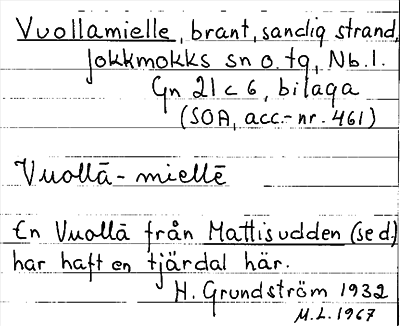 Vuollamielle, brant, sandig strand,
Jokkmokks sn o. tg, Nb. l.
Gn 21 c 6, bilaga
(SOA, acc.-nr. 461)
Vuollā-miellē
En Vuollā från Mattisudden (se d)
har haft en tjärdal här.
H. Grundström 1932
M.L. 1967